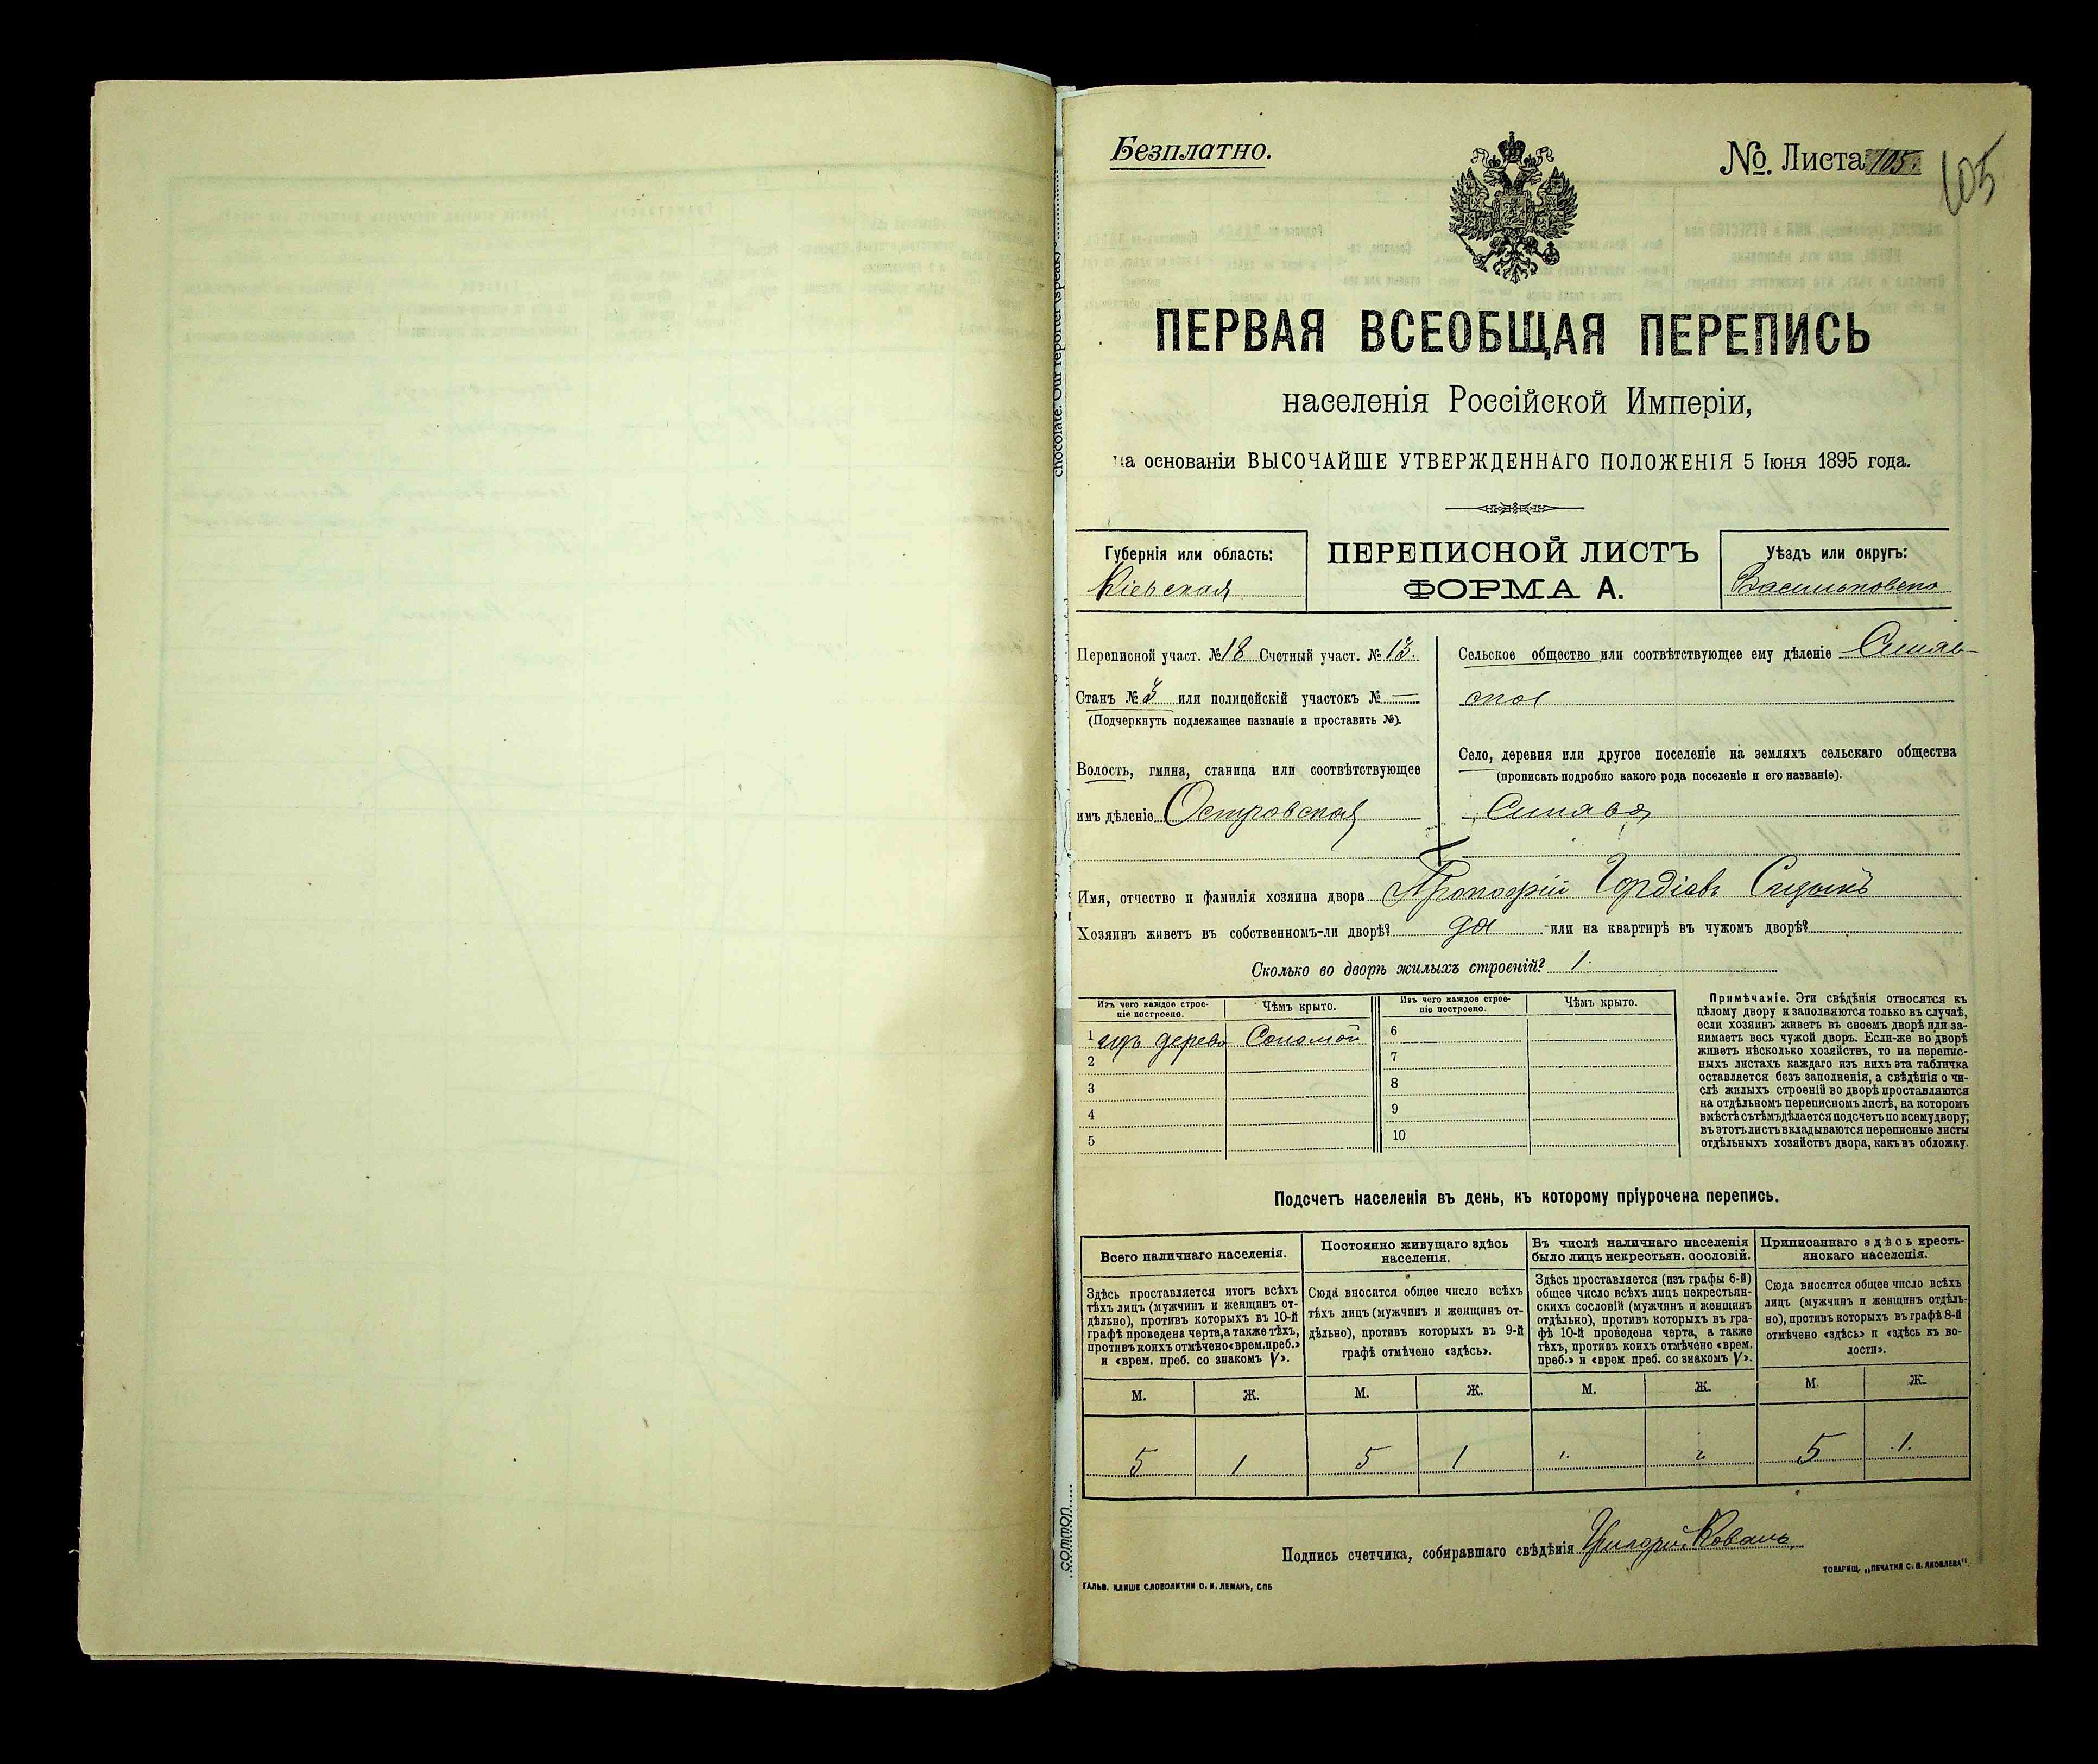 Безплатно.
№. Листа 105.
105
ПЕРВАЯ ВСЕОБЩАЯ ПЕРЕПИСЬ
населенія Россійской Имперіи,
на основаніи ВЫСОЧАЙШЕ УТВЕРЖДЕННАГО ПОЛОЖЕНІЯ 5 Іюня 1895 года.
Губернія или область:
Кіевская
ПЕРЕПИСНОЙ ЛИСТЪ
ФОРМА А.
Уѣздъ или округъ:
Васильковскій
Переписной участ. № 18 Счетный участ. № 13.
Станъ № 3 или полицейскій участокъ № —
(Подчеркнуть подлежащее названіе и проставить №).
Волость, гмина, станица или соотвѣтствующее
имъ дѣленіе Островская
Сельское общество или соотвѣтствующее ему дѣленіе Синяв-
ское
Село, деревня или другое поселеніе на земляхъ сельскаго общества
(прописать подробно какого рода поселеніе и его названіе).
Синява
Имя, отчество и фамилія хозяина двора Прокофій Гордіевъ
Хозяинъ живетъ въ собственномъ-ли дворѣ? да или на квартирѣ въ чужомъ дворѣ?
Сколько во дворѣ жилыхъ строеній? 1.
Изъ чего каждое строе-
ніе построено.
Чѣмъ крыто.
Изъ чего каждое строе-
ніе построено.
Чѣмъ крыто.
1 изъ дерева Соломой
2
3
4
5
6
7
8
9
10
Примѣчаніе. Эти свѣдѣнія относятся къ
цѣлому двору и заполняются только въ случаѣ,
если хозяинъ живетъ въ своемъ дворѣ или за-
нимаетъ весь чужой дворъ. Если-же во дворѣ
живетъ нѣсколько хозяйствъ, то на перепис-
ныхъ листахъ каждаго изъ нихъ эта табличка
оставляется безъ заполненія, а свѣдѣнія о чи-
слѣ жилыхъ строеній во дворѣ проставляются
на отдѣльномъ переписномъ листѣ, на которомъ
вмѣстѣ съ тѣмъ дѣлается подсчетъ по всему двору;
въ этотъ листъ вкладываются переписные листы
отдѣльныхъ хозяйствъ двора, какъ въ обложку.
Подсчетъ населенія въ день, къ которому пріурочена перепись.
Всего наличнаго населенія.
Здѣсь проставляется итогъ всѣхъ
тѣхъ лицъ (мужчинъ и женщинъ от-
дѣльно), противъ которыхъ въ 10-й
графѣ проведена черта, а также тѣхъ,
противъ коихъ отмѣчено «врем. преб.»
и «врем. преб. со знакомъ V».
Постоянно живущаго здѣсь
населенія.
Сюда вносится общее число всѣхъ
тѣхъ лицъ (мужчинъ и женщинъ от-
дѣльно), противъ которыхъ въ 9-й
графѣ отмѣчено «здѣсь».
Въ числѣ наличнаго населенія
было лицъ некрестьян. сословій.
Здѣсь проставляется (изъ графы 6-й)
общее число всѣхъ лицъ некрестьян-
скихъ сословій (мужчинъ и женщинъ
отдѣльно), противъ которыхъ въ гра-
фѣ 10-й проведена черта, а также
тѣхъ, противъ коихъ отмѣчено «врем.
преб.» и «врем преб. со знакомъ V».
Приписаннаго здѣсь кресть-
янскаго населенія.
Сюда вносится общее число всѣхъ
лицъ (мужчинъ и женщинъ отдѣль-
но), противъ которыхъ въ графѣ 8-й
отмѣчено «здѣсь» и «здѣсь къ во-
лости».
М. Ж. М. Ж. М. Ж. М. Ж.
5 1 5 1 " " 5 1.
Подпись счетчика, собиравшаго свѣдѣнія Григорій Коваль
ГАЛЬВ. КЛИШЕ СЛОВОЛИТНИ О. И. ЛЕМАНЪ, СПБ
ТОВАРИЩ. „ПЕЧАТНЯ С. П. ЯКОВЛЕВА".
chocolate. Our reporter (speak)
common